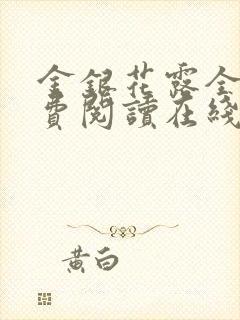 金銀花露全
費閱讀在綫
黃白